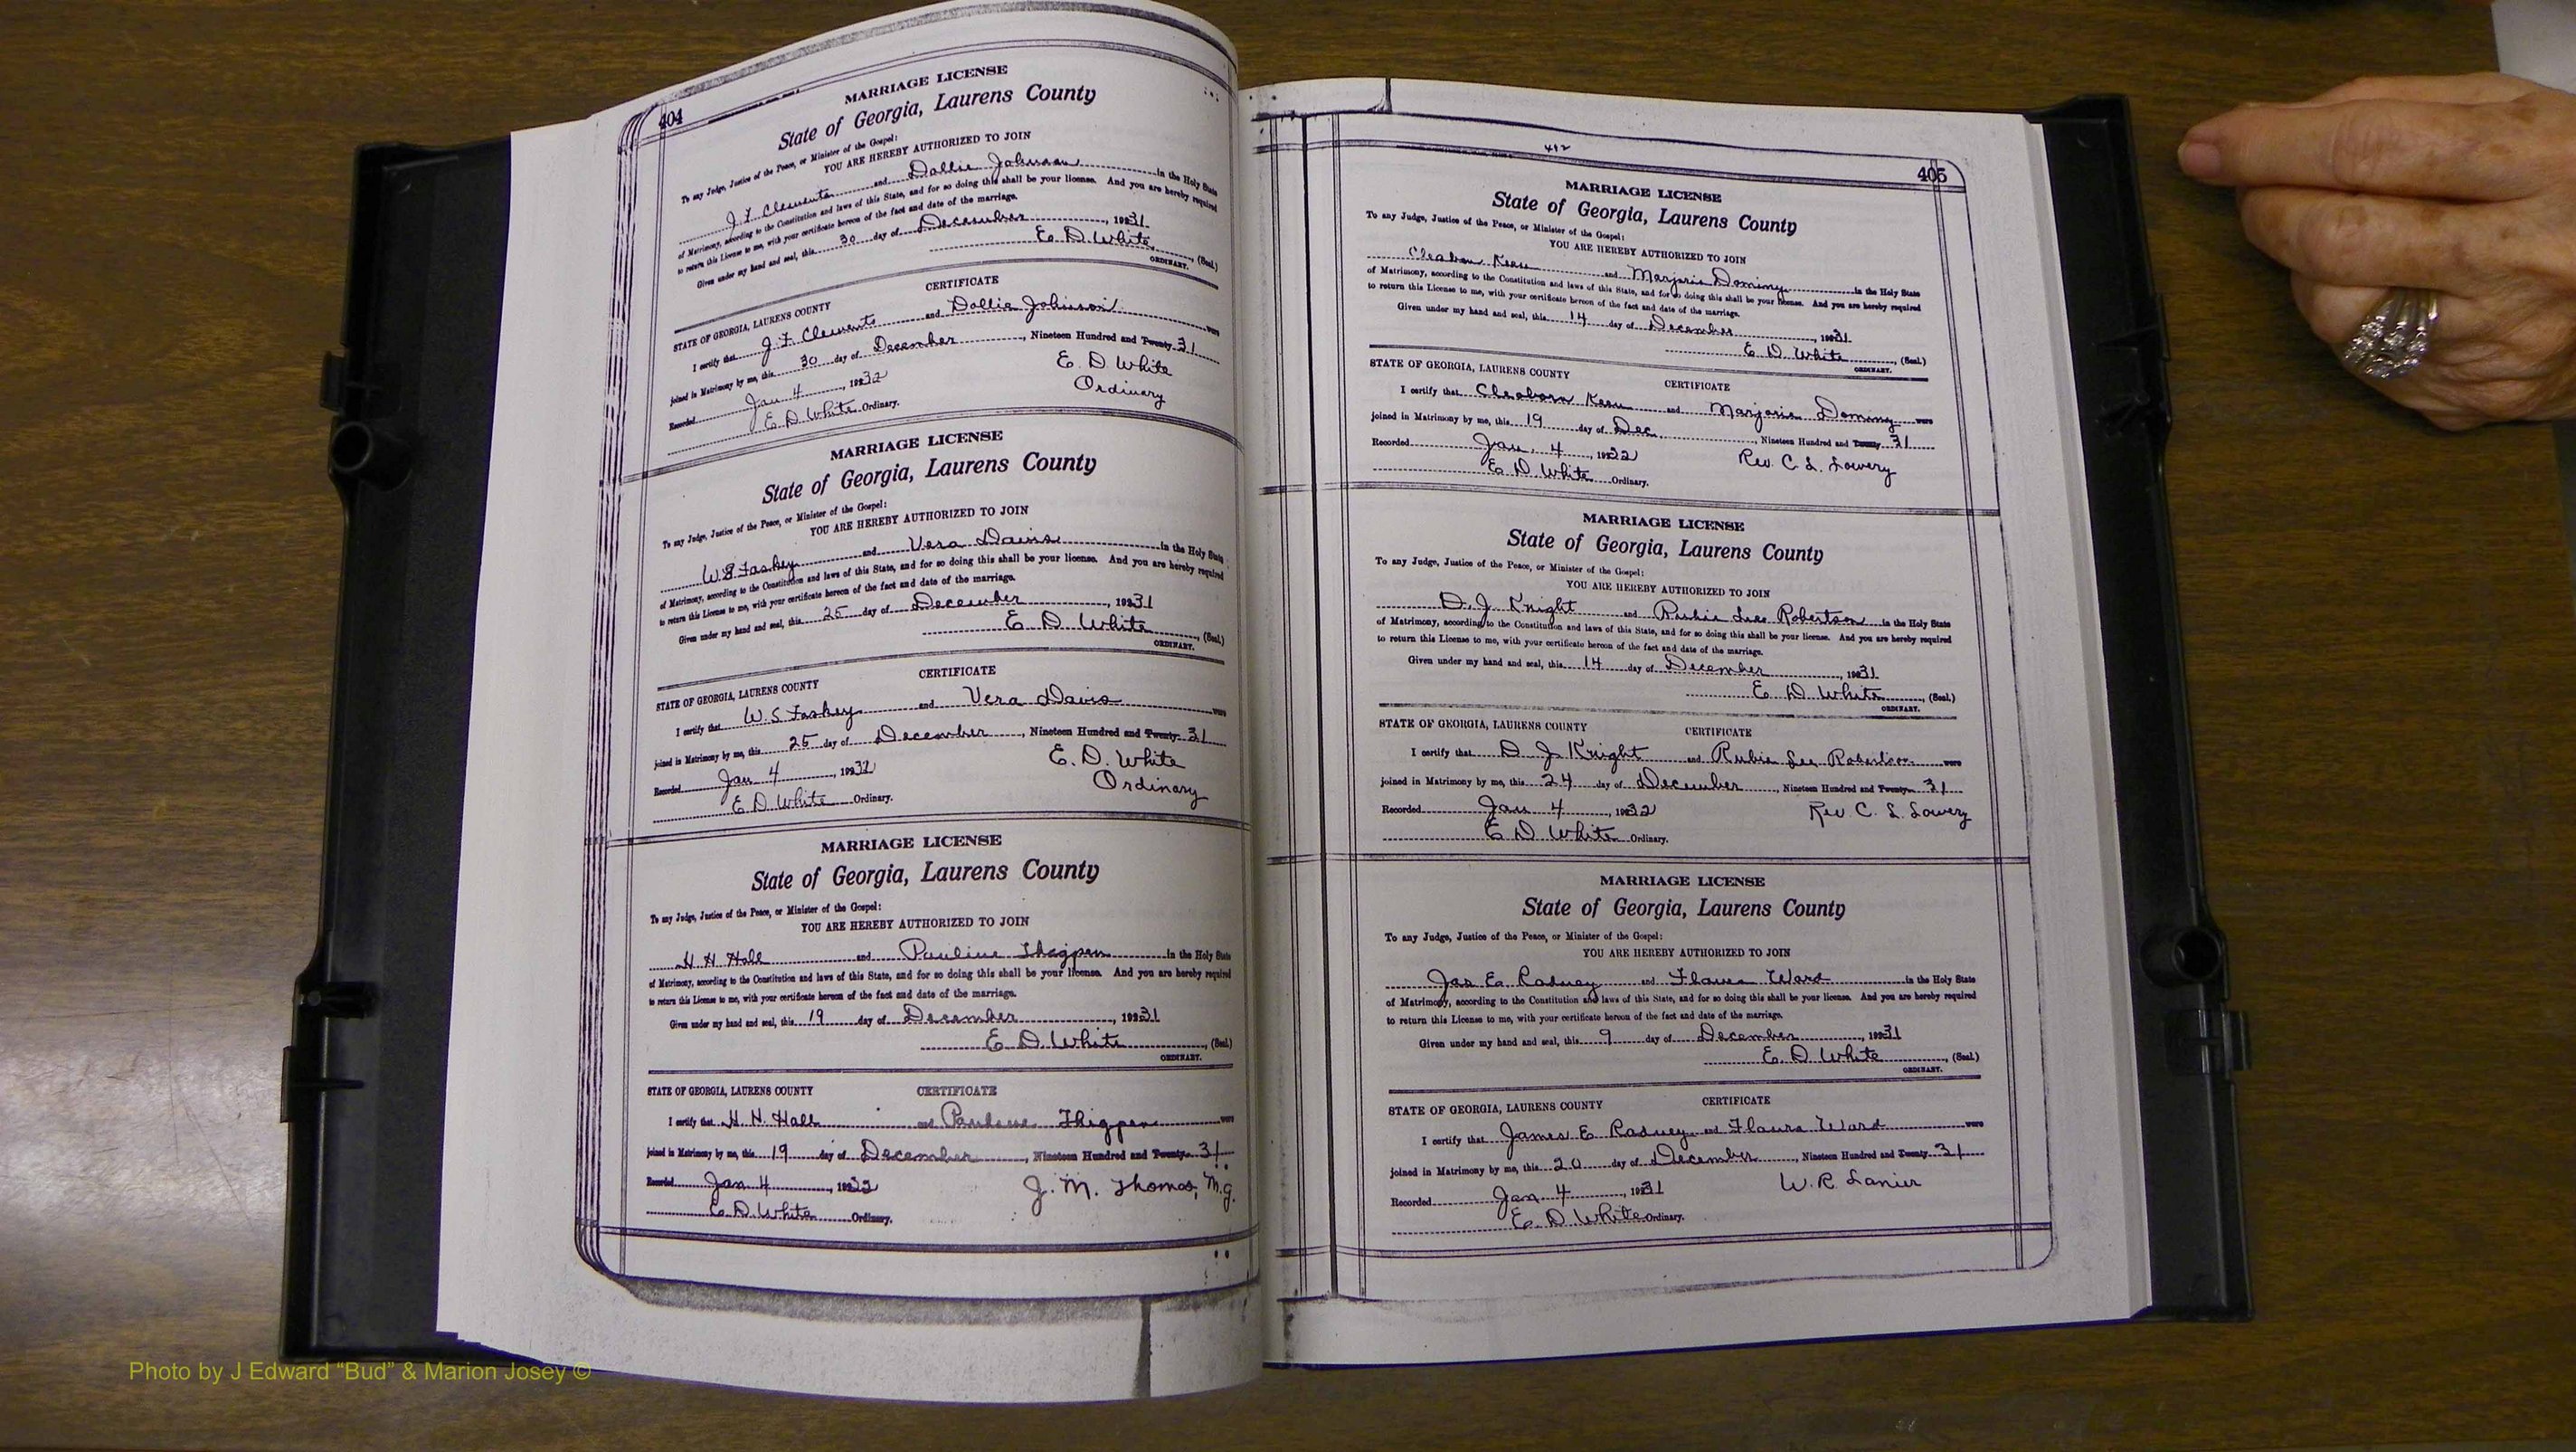 404
MARRIAGE LICENSE
State of Georgia, Laurens County
To any Judge, Justice of the Peace, or Minister of the Gospel:
YOU ARE HEREBY AUTHORIZED TO JOIN
J. F. Clements and Dollie Johnson in the Holy State
of Matrimony, according to the Constitution and laws of this State, and for so doing this shall be your license. And you are hereby required
to return this License to me, with your certificate hereon of the fact and date of the marriage.
Given under my hand and seal, this 30 day of December, 1931
E. D. White, (Seal)
ORDINARY.
CERTIFICATE
STATE OF GEORGIA, LAURENS COUNTY
I certify that J. F. Clements and Dollie Johnson were
joined in Matrimony by me, this 30 day of December, Nineteen Hundred and Twenty 31
Recorded Jan 4, 1932
E. D. White
Ordinary
E D White Ordinary.
MARRIAGE LICENSE
State of Georgia, Laurens County
To any Judge, Justice of the Peace, or Minister of the Gospel:
YOU ARE HEREBY AUTHORIZED TO JOIN
W. S. Faskey and Vera Davis in the Holy State
of Matrimony, according to the Constitution and laws of this State, and for so doing this shall be your license. And you are hereby required
to return this License to me, with your certificate hereon of the fact and date of the marriage.
Given under my hand and seal, this 25 day of December, 1931
E D White, (Seal)
ORDINARY.
CERTIFICATE
STATE OF GEORGIA, LAURENS COUNTY
I certify that W. S Faskey and Vera Davis were
joined in Matrimony by me, this 25 day of December, Nineteen Hundred and Twenty 31
Recorded Jan 4, 1932
E. D. White
Ordinary
E D White Ordinary.
MARRIAGE LICENSE
State of Georgia, Laurens County
To any Judge, Justice of the Peace, or Minister of the Gospel:
YOU ARE HEREBY AUTHORIZED TO JOIN
H. H. Hall and Pauline Thigpen in the Holy State
of Matrimony, according to the Constitution and laws of this State, and for so doing this shall be your license. And you are hereby required
to return this License to me, with your certificate hereon of the fact and date of the marriage.
Given under my hand and seal, this 19 day of December, 1931
E D White, (Seal)
ORDINARY.
STATE OF GEORGIA, LAURENS COUNTY CERTIFICATE
I certify that H. H. Hall and Pauline Thigpen were
joined in Matrimony by me, this 19 day of December, Nineteen Hundred and Twenty 31
Recorded Jan 4, 1932
J. M. Thomas, M.G.
E D White Ordinary.
412
405
MARRIAGE LICENSE
State of Georgia, Laurens County
To any Judge, Justice of the Peace, or Minister of the Gospel:
YOU ARE HEREBY AUTHORIZED TO JOIN
Cleaborn Keen and Marjorie Dominy in the Holy State
of Matrimony, according to the Constitution and laws of this State, and for so doing this shall be your license. And you are hereby required
to return this License to me, with your certificate hereon of the fact and date of the marriage.
Given under my hand and seal, this 14 day of December, 1931
E D White, (Seal)
ORDINARY.
STATE OF GEORGIA, LAURENS COUNTY CERTIFICATE
I certify that Cleaborn Keen and Marjorie Dominy were
joined in Matrimony by me, this 19 day of Dec., Nineteen Hundred and Twenty 31
Recorded Jan. 4, 1932
Rev. C. L. Lowery
E D White Ordinary.
MARRIAGE LICENSE
State of Georgia, Laurens County
To any Judge, Justice of the Peace, or Minister of the Gospel:
YOU ARE HEREBY AUTHORIZED TO JOIN
D. J. Knight and Rubie Lee Robertson in the Holy State
of Matrimony, according to the Constitution and laws of this State, and for so doing this shall be your license. And you are hereby required
to return this License to me, with your certificate hereon of the fact and date of the marriage.
Given under my hand and seal, this 14 day of December, 1931
E D White, (Seal)
ORDINARY.
STATE OF GEORGIA, LAURENS COUNTY CERTIFICATE
I certify that D J Knight and Rubie Lee Robertson were
joined in Matrimony by me, this 24 day of December, Nineteen Hundred and Twenty 31
Recorded Jan 4, 1932
Rev. C. L. Lowery
E D White Ordinary.
MARRIAGE LICENSE
State of Georgia, Laurens County
To any Judge, Justice of the Peace, or Minister of the Gospel:
YOU ARE HEREBY AUTHORIZED TO JOIN
Jas E. Radney and Flaura Ward in the Holy State
of Matrimony, according to the Constitution and laws of this State, and for so doing this shall be your license. And you are hereby required
to return this License to me, with your certificate hereon of the fact and date of the marriage.
Given under my hand and seal, this 9 day of December, 1931
E. D. White, (Seal)
ORDINARY.
STATE OF GEORGIA, LAURENS COUNTY CERTIFICATE
I certify that James E Radney and Flaura Ward were
joined in Matrimony by me, this 20 day of December, Nineteen Hundred and Twenty 31
Recorded Jan 4, 1931
W. R. Lanier
E D White Ordinary.
Photo by J Edward “Bud” & Marion Josey ©